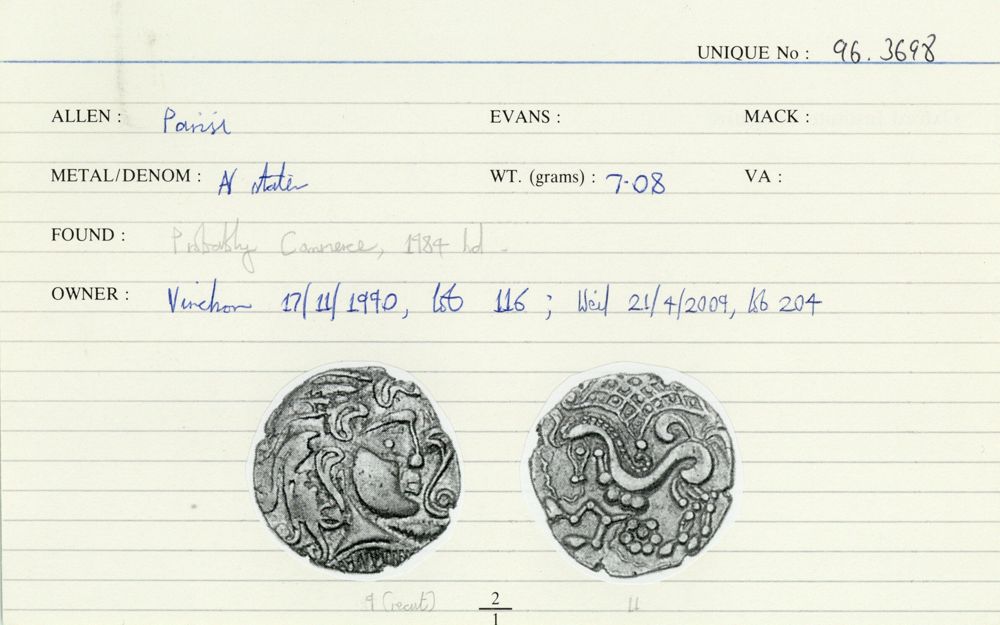 UNIQUE No : 96.3698
ALLEN : Parisi EVANS : MACK :
METAL/DENOM : AV stater WT. (grams) : 7.08 VA :
FOUND : Probably Commerce, 1984 hd.
OWNER : Vinchon 17/11/1990, lot 116 ; Weil 21/4/2009, lot 204
(recut) 2
1